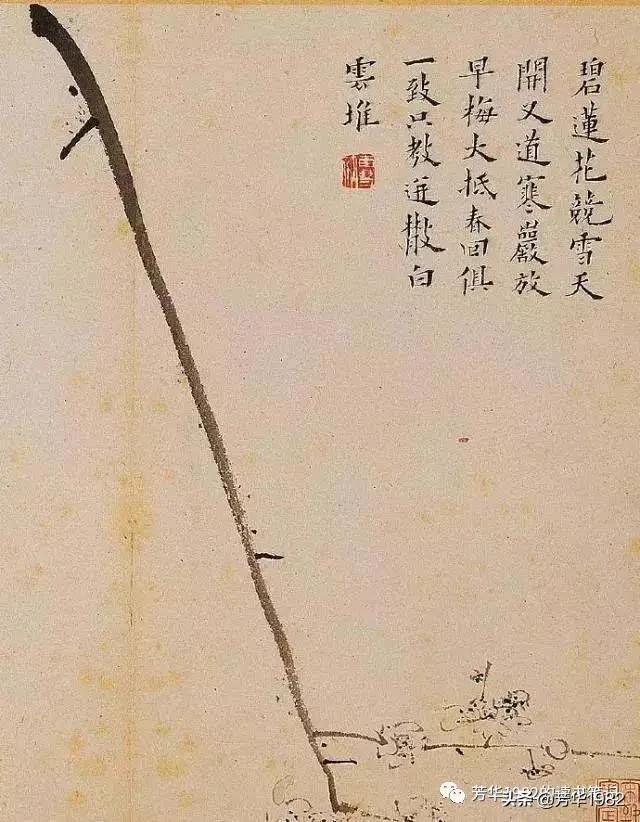 碧蓮花競雪天
開又道寒巖放
早梅大抵春回俱
一致只教迸散白
雲堆
芳华1982的读书笔记
头条 @芳华1982